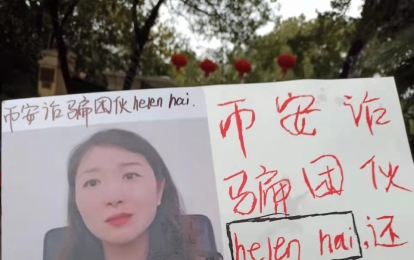 币安诈骗团伙helen hai.
币安诈
骗团伙
helen hai,还